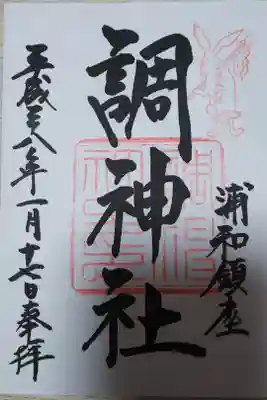 浦和鎮座
調神社
平成二八年一月十七日奉拝